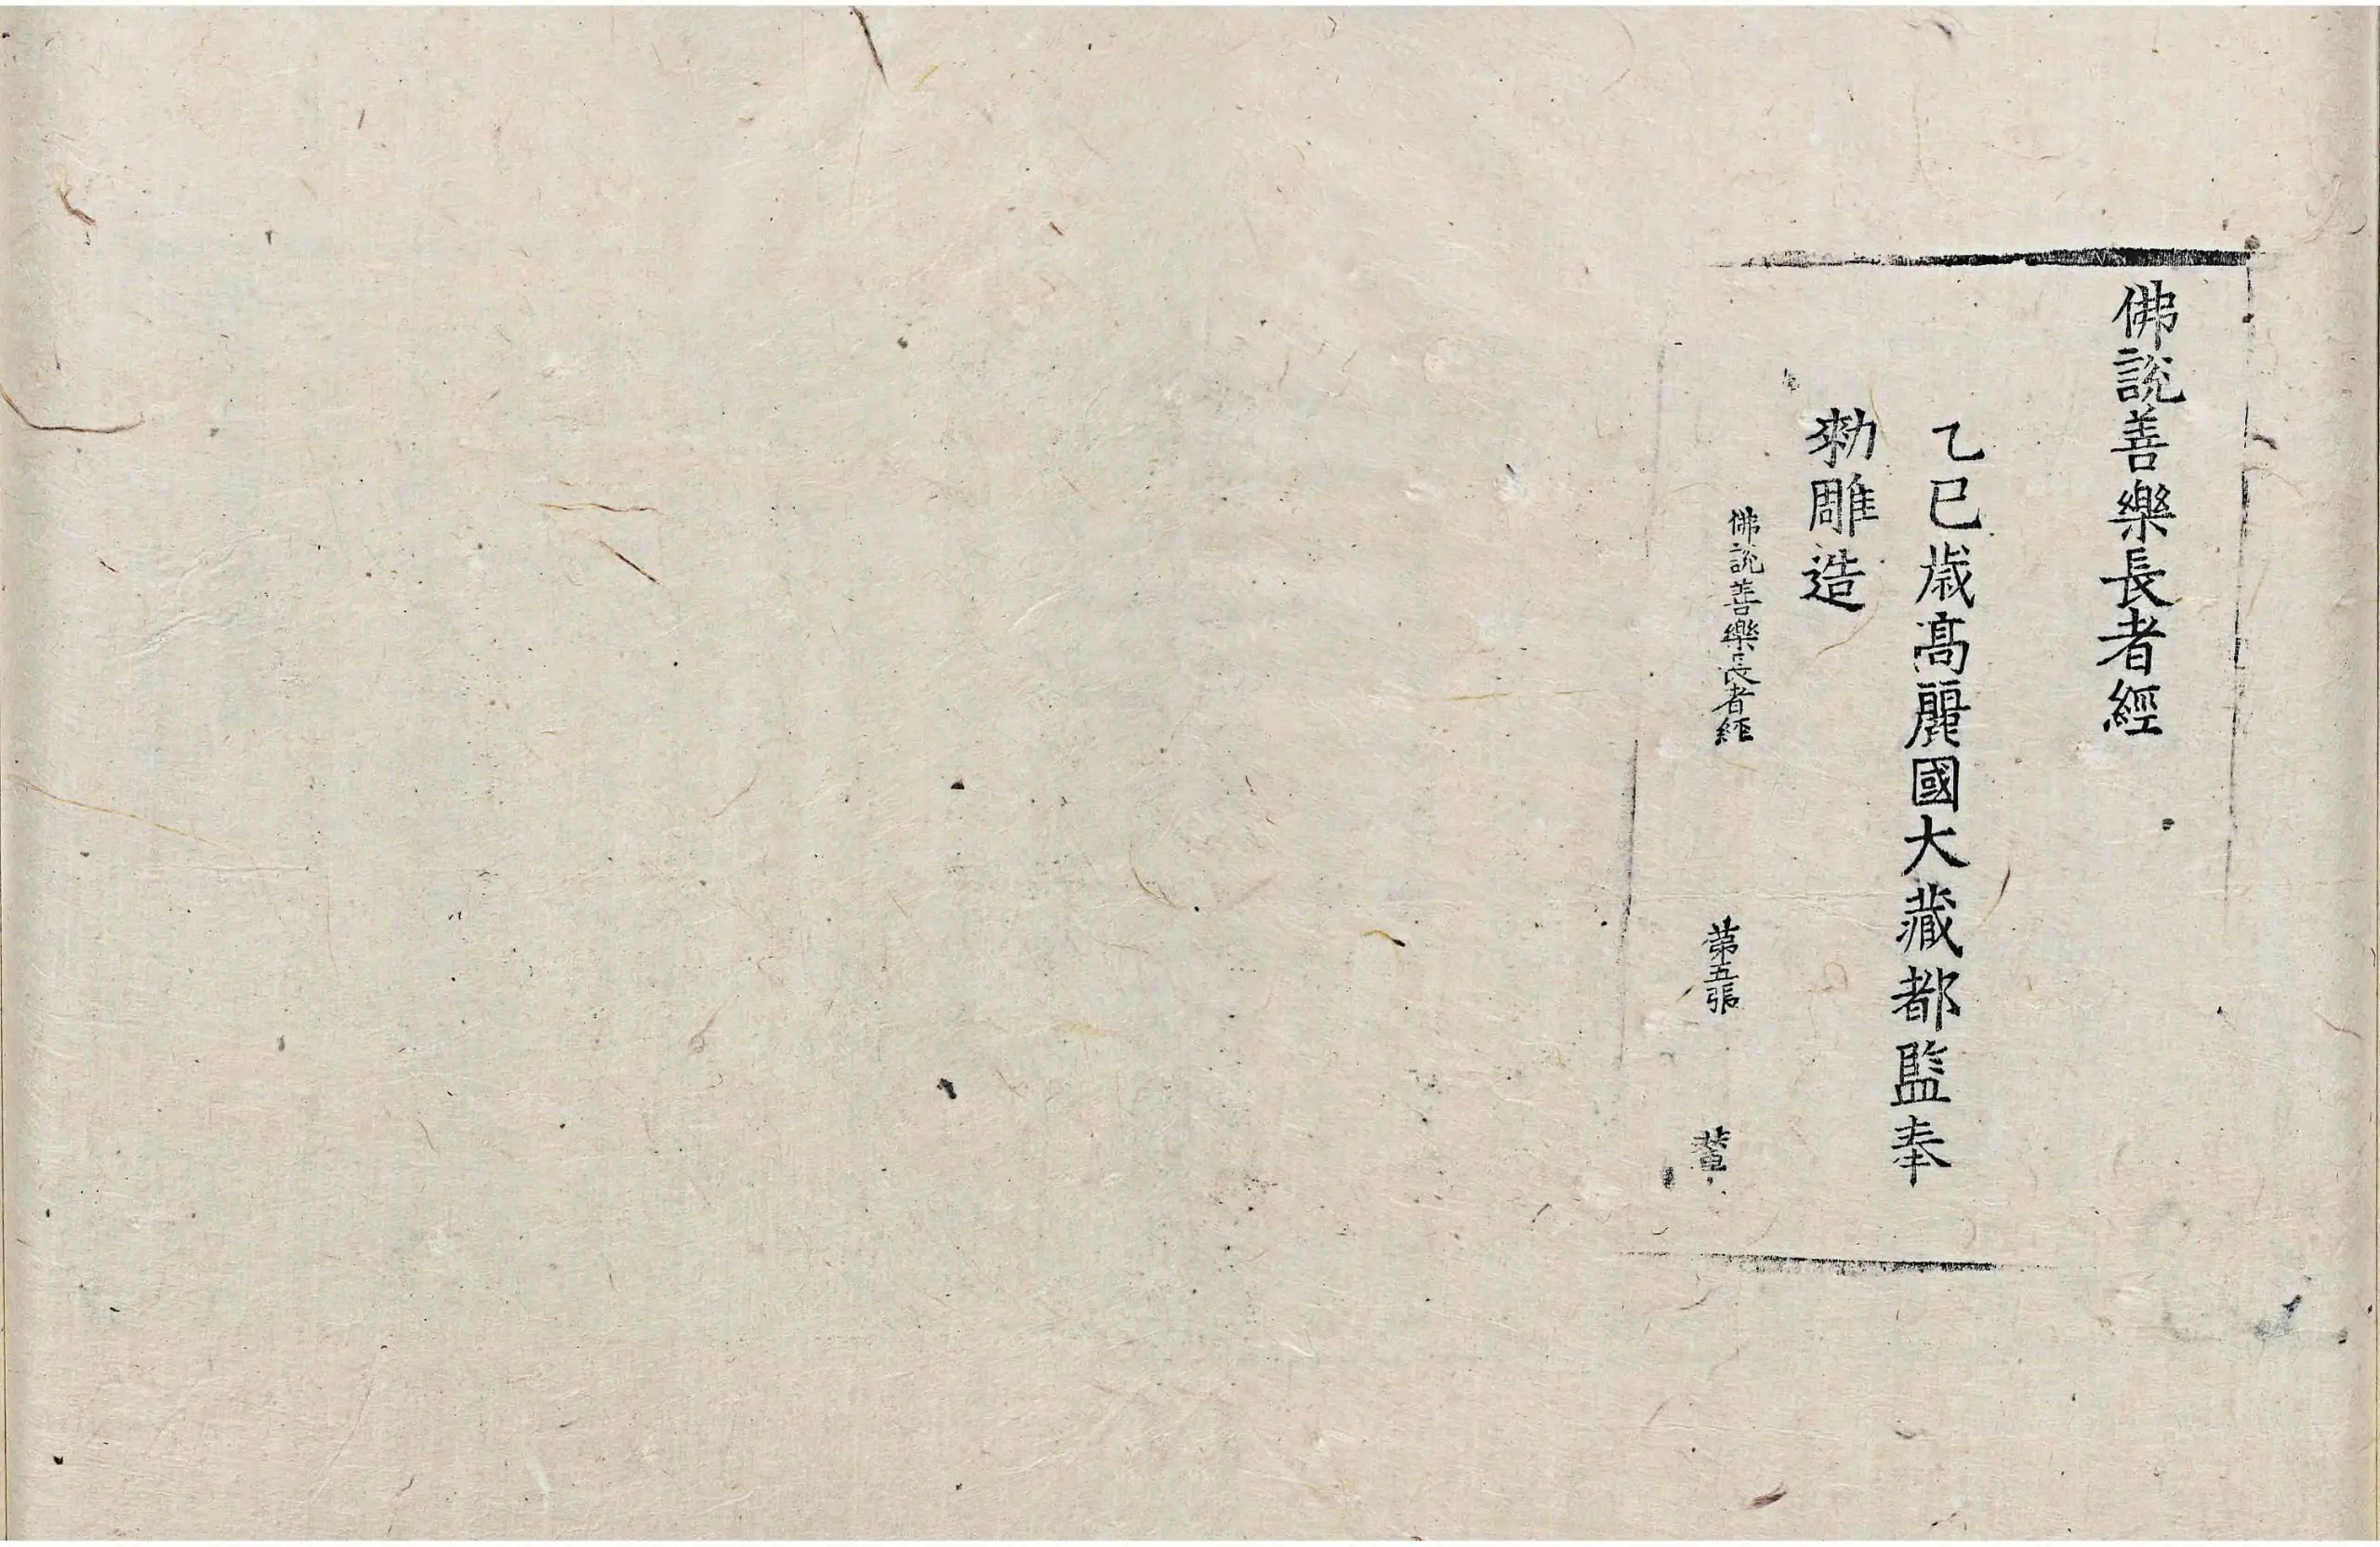 佛說善樂長者經
乙巳歲高麗國大藏都監奉
勅雕造
佛說善樂長者經 第五張